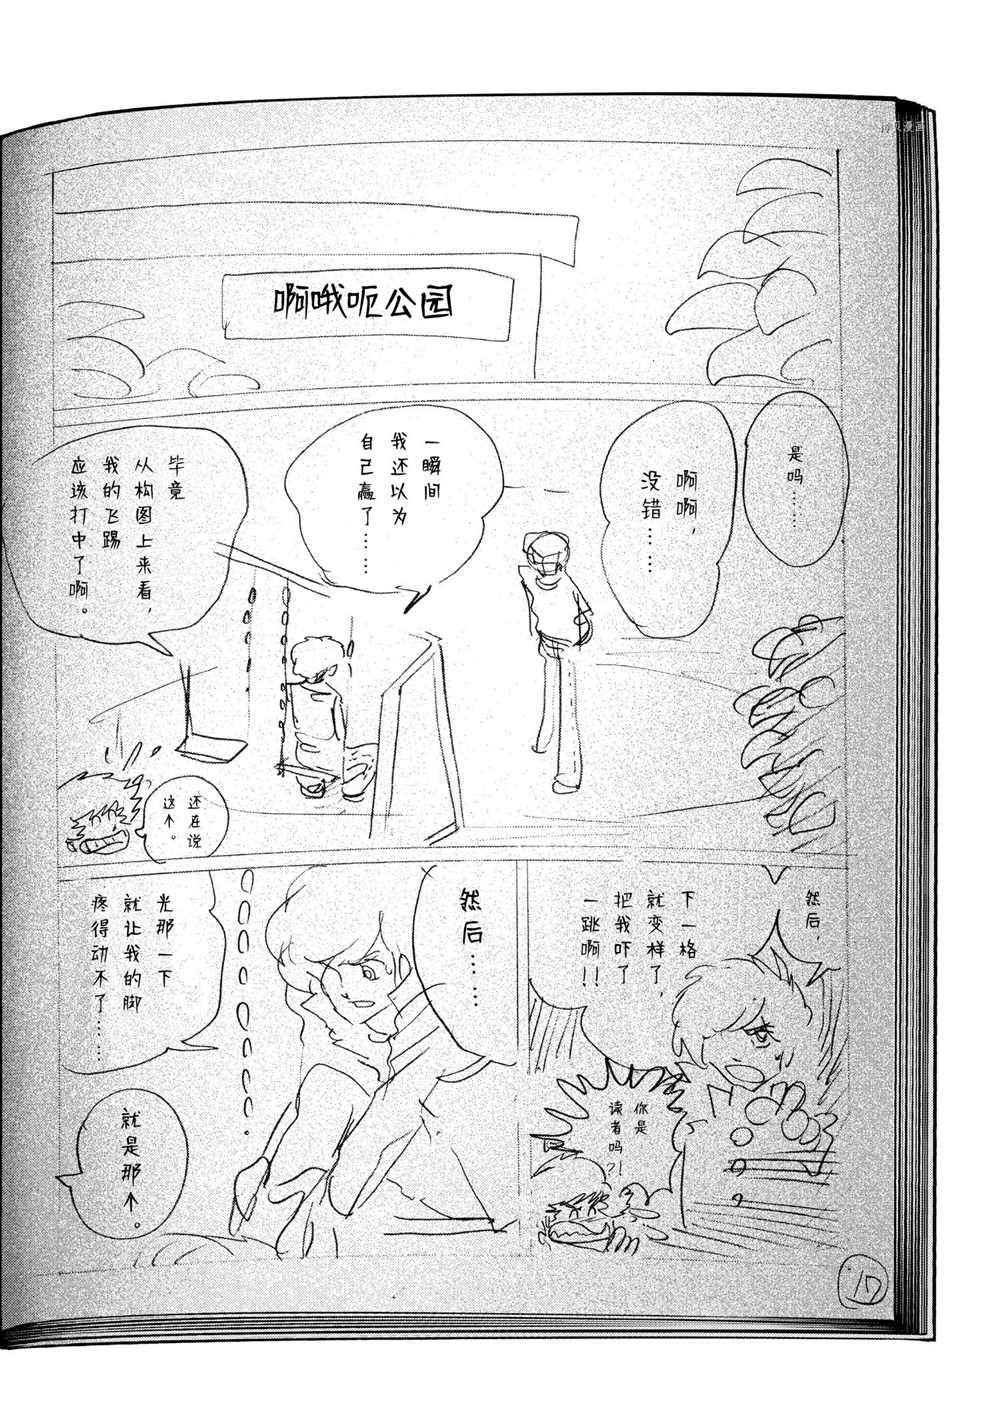 拷贝漫画
啊哦呃公园
是吗……
啊啊，
没错……
一瞬间
我还以为
自己赢了……
毕竟
从构图上来看，
我的飞踢
应该打中了啊。
还在说
这个。
然后，
下一格
就变样了，
把我吓了
一跳啊！！
你是
读者吗？！
然后……
光那一下
就让我的脚
疼得动不了……
就是那个。
17